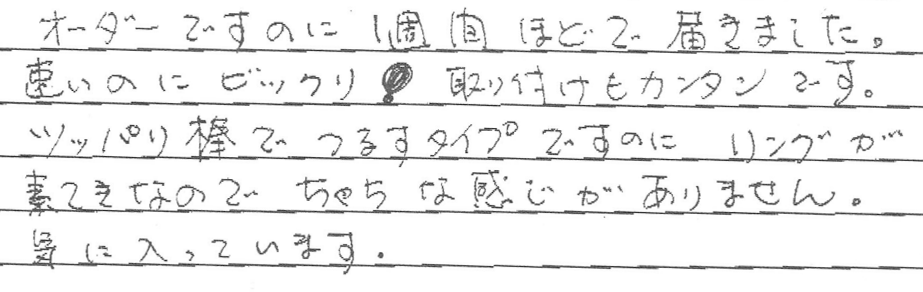 オーダーですのに1週間ほどで届きました。
速いのにビックリ!取り付けもカンタンです。
ツッパリ棒でつるすタイプですのにリングが
素てきなのでちゃちな感じがありません。
気に入っています.